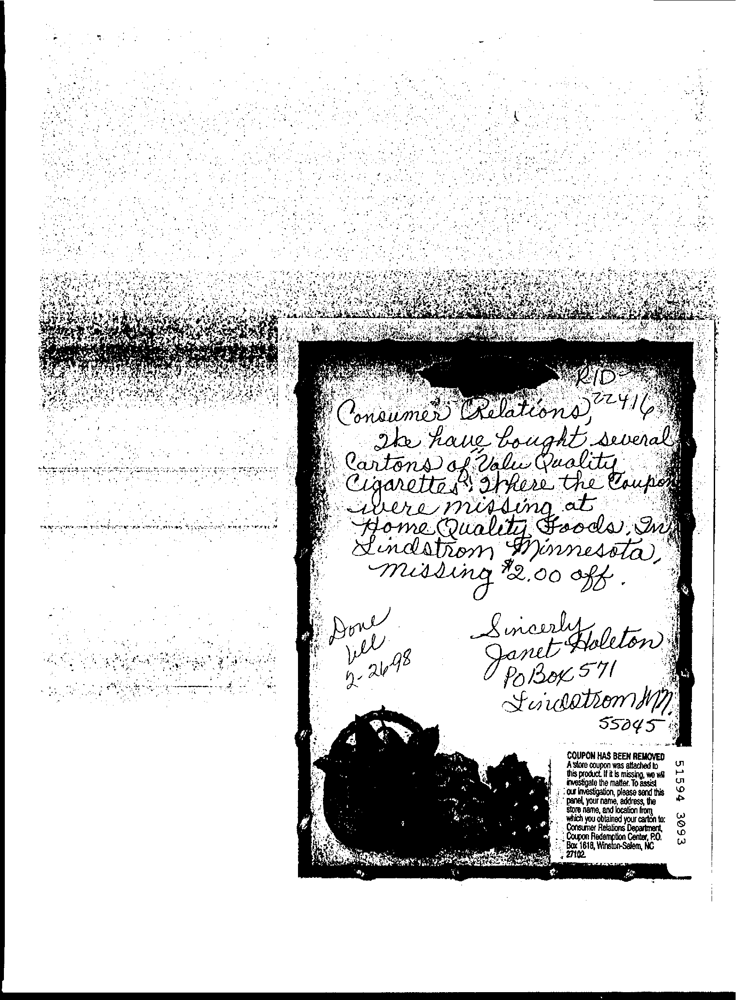 RID
22416
Consumer Relations,
We have bought several
Cartons of Valu Quality
Cigarettes, Where the Coupon
were missing at
Home Quality Foods, In
Lindstrom Minnesota,
missing $2.00 off.
Done
2-26-98
Sincerly
Janet
PO Box 571
Lindstrom MN.
55045
COUPON HAS BEEN REMOVED
A store coupon was attached to
this product. If it is missing, we will
investigate the matter. To assist
our investigation, please send this
panel, your name, address, the
store name, and location from
which you obtained your carton to:
Consumer Relations Department,
Coupon Redemption Center, P.O.
Box 1618, Winston-Salem, NC
27102.
51594 3093